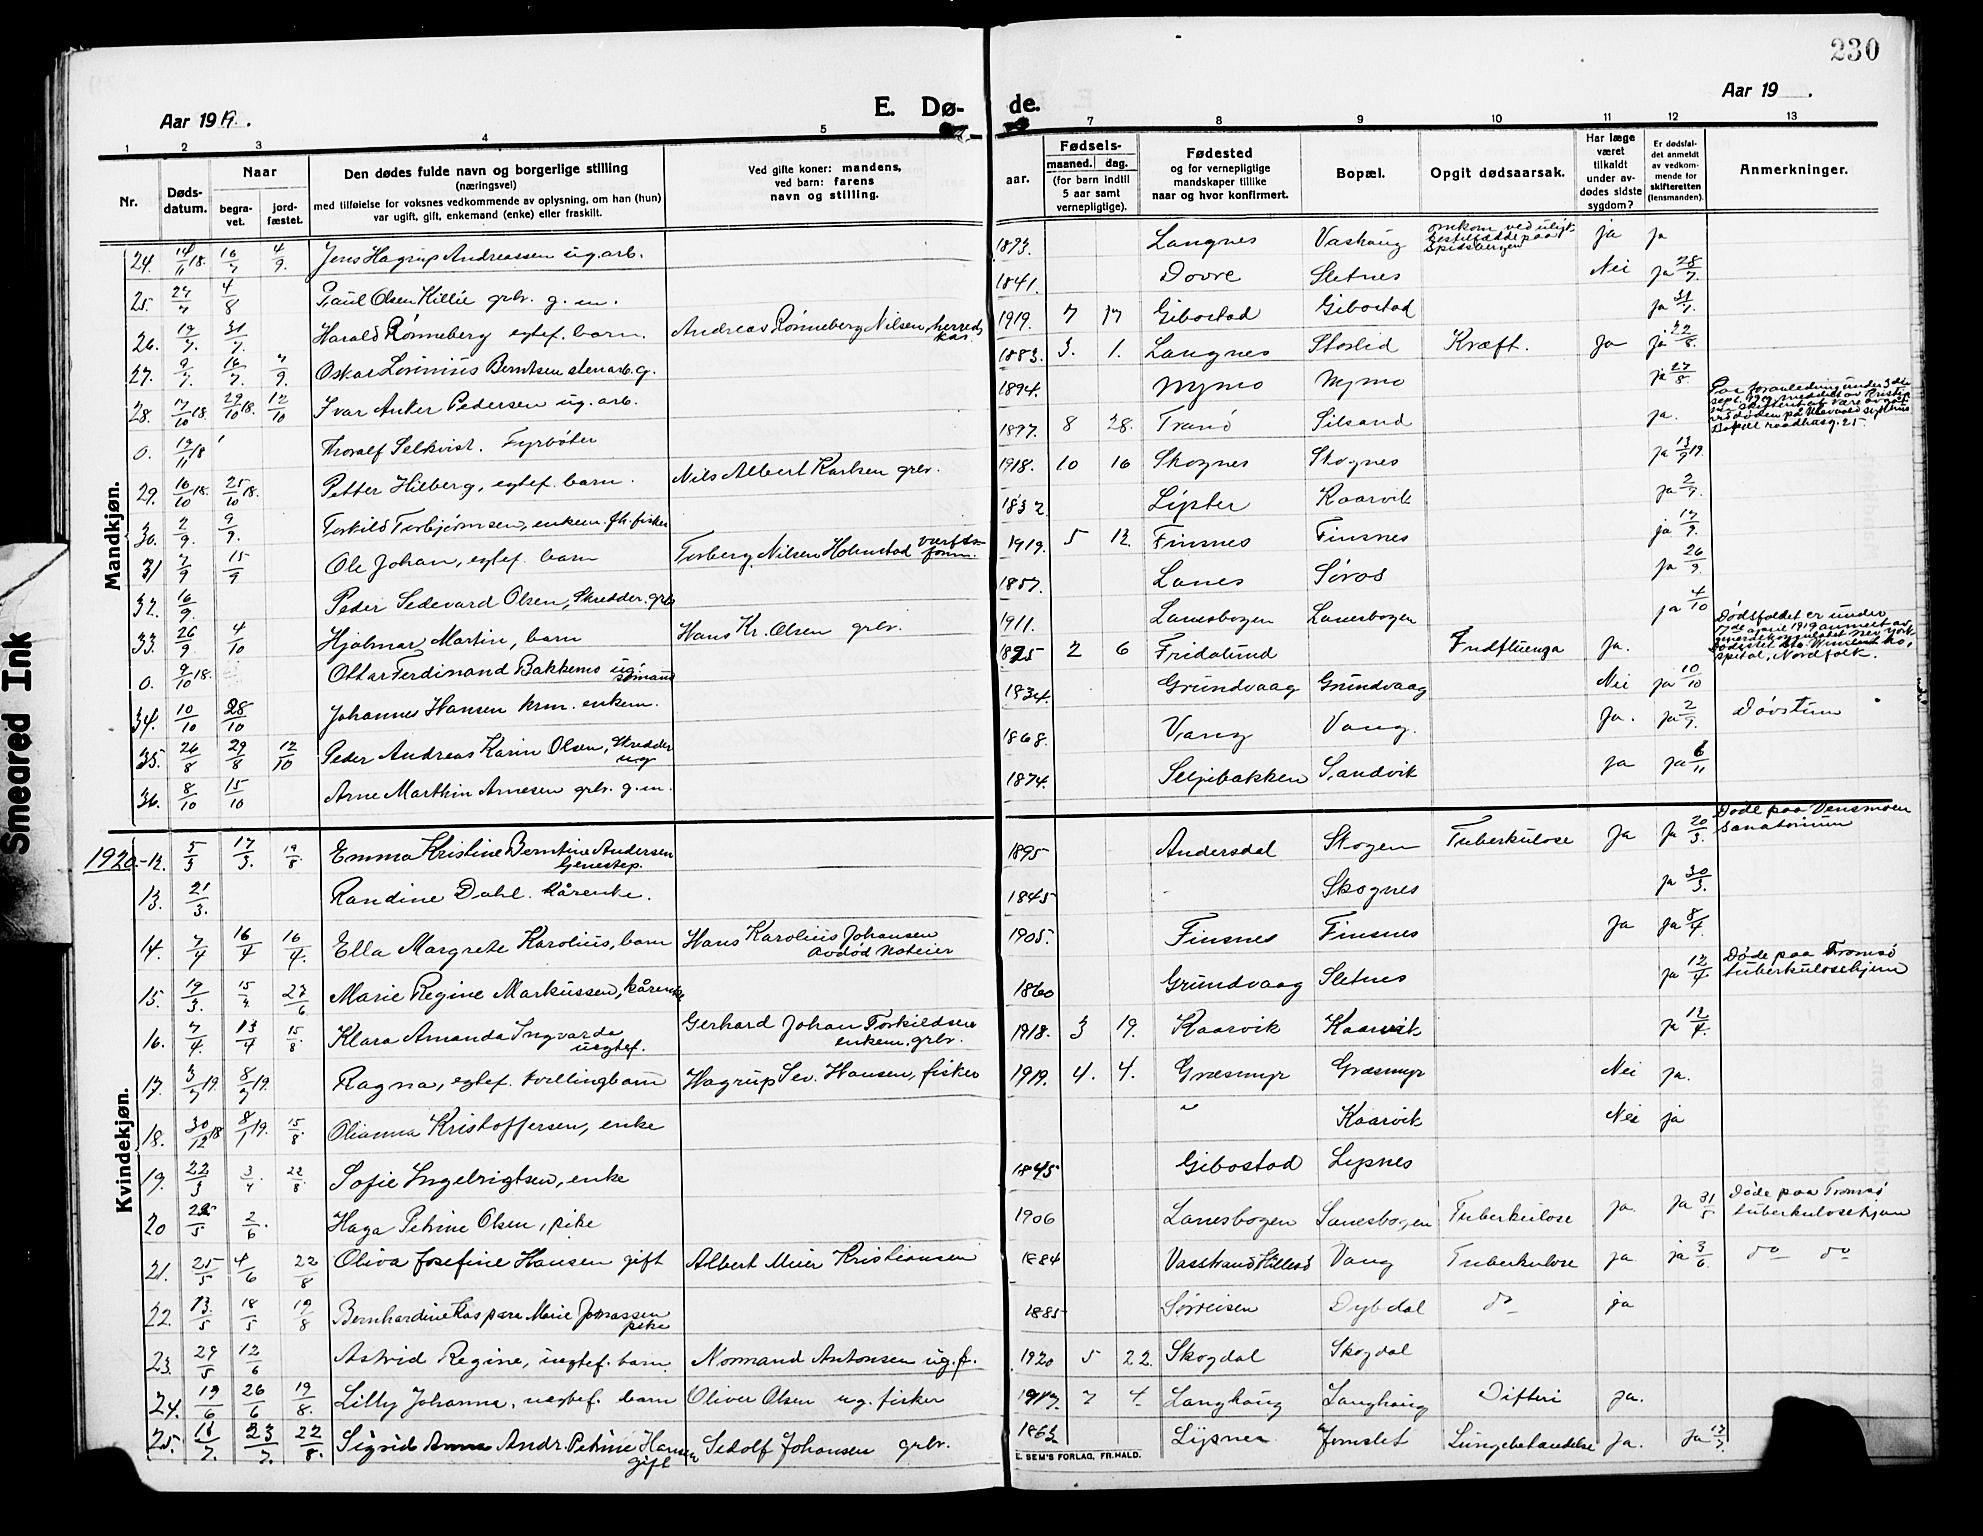 230
Aar 1919.
E. Dø- de.
Aar 19 .
1 2 3 4 5 7 8 9 10 11 12 13
Nr.
Døds-
datum.
Naar
begra-
vet.
jord-
fæstet.
Den dødes fulde navn og borgerlige stilling
(næringsvei)
med tilføielse for voksnes vedkommende av oplysning, om han (hun)
var ugift, gift, enkemand (enke) eller fraskilt.
Ved gifte koner: mandens,
ved barn: farens
navn og stilling.
Fødsels-
aar. maaned. dag.
(for barn indtil
5 aar samt
vernepligtige).
Fødested
og for vernepligtige
mandskaper tillike
naar og hvor konfirmert.
Bopæl.
Opgit dødsaarsak.
Har læge
været
tilkaldt
under av-
dødes sidste
sygdom?
Er dødsfal-
det anmeldt
av vedkom-
mende for
skifteretten
(lensmanden).
Anmerkninger.
Mandkjøn.
24. 14/11 18. 16/7 4/9. Jens Hagrup Andreassen ug. arb. 1893. Langnes Vashaug omkom ved Spidsbergen ja ja
25. 27/7 4/8 Paul Olsen Killie grbr. g. m. 1841. Dovre Sletnes Nei ja 28/7.
26. 19/7. 31/7. Harald Rønneberg egtef. barn. Andreas Rønneberg Nilsen, herreds kas. 1919. 7 17 Gibostad Gibostad ja 31/7.
27. 9/7. 16/7. 7/9. Oskar Lorinius Berntsen stenarb. g. 1883. 3. 1. Langnes Storlid Kræft. Ja ja 22/8.
28. 17/10 18. 29/10 18. 12/10 Ivar Anker Pedersen ug. arb. 1894. Nymo Nymo ja 27/8.
0. 19/11 18 Thoralf Selkvist. Fyrbøter 1897. 8 28. Tranø Silsand ja.
29. 16/10 18. 25/10 18. Petter Hilberg, egtef. barn. Nils Albert Karlsen grbr. 1918. 10 16 Skognes Skognes ja 13/9 19.
30. 2/9. 9/9. Torkild Torbjørnsen, enkem. fh. fisker 1832. Lyster Kaarvik ja 2/9.
31 7/9 15/9 Ole Johan, egtef. barn Torberg Nilsen Holmstad værfts- form. 1919. 5 12. Finsnes Finsnes ja 17/9.
32. 16/9. Peder Sedevard Olsen, Skredder. grbr 1857. Lanes Søros ja 26/9.
33. 26/9. 4/10 Hjalmar Martin, barn Hans Kr. Olsen grbr. 1911. Lanesbogen Lanesbogen ja 4/10
0. 9/10 18. Ottar Ferdinand Bakkemo ug. sømand 1895 2 6 Fridalund Indfluenza Ja. Dødsfaldet er under 7de april 1919 anmeldt av generalkonsulatet New York. Dødsstedet Vincent ho, spital, Nordfolk.
34. 10/10 28/10 Johannes Hansen krm. enkem. 1834. Grundvaag Grundvaag Nei ja 10/10
35. 26/8 29/8 12/10 Peder Andreas Karin Olsen, Skredder ug 1868. Vang Vang. Ja. ja 2/9. Døvstum
36. 8/10 15/10 Arne Marthin Arnesen grbr. g. m. 1874. Seljebakken Sandvik ja ja 6/11
Kvindekjøn.
1920-12. 5/3 17/3. 19/8 Emma Kristine Berntine Andersen tjenestep. 1895 Andersdal Skogen Tuberkulose Ja Ja 20/3. Døde paa Vensmoen Sanatorium
13. 21/3. Randine Dahl. kårenke. 1845 - Skognes ja 30/3.
14. 7/4 16/4 16/4. Ella Margrete Karolius, barn Hans Karolius Johansen avdød Noteier 1905. Finsnes Finsnes Ja Ja 8/4
15. 19/3. 15/4. 27/6 Marie Regine Markussen, kårenke 1860 Grundvaag Sletnes ja 12/4 Døde paa Tromsø tuberkulosehjem
16. 7/4. 13/4 15/8 Klara Amanda Ingvarda uegtef. Gerhard Johan Torkildsen enkem. grbr. 1918. 3 19. Kaarvik Kaarvik ja 12/4.
17. 3/7 19 8/7 19. Ragna, egtef. tvillingbarn Hagrup Sev. Hansen, fisker 1919. 4. 4. Græsmyr Græsmyr Nei ja.
18. 30/12 18 8/1 19. 15/8 Olianna Kristoffersen, enke " Kaarvik Nei ja
19. 22/3 3/4 22/8 Sofie Ingebrigtsen, enke 1845 Gibostad Lysnes
20 22/5 2/6. Haga Petrine Olsen, pike 1906 Lanesbogen Lanesbogen Tuberkulose ja. Ja 31/5 Døde paa Tromsø tuberkulosehjem
21. 25/5 4/6 22/8 Oliva Josefine Hansen gift Albert Meier Kristiansen 1884 Vasstrand Hillesø Vang Tuberkulose ja ja 3/6. do do
22. 13./5 18/5 19/8 Bernhardine Kaspara Marie Jonassen pike 1885 Sørreisen Dybdal do ja
23. 29/5 12/6 Astrid Regine, uegtef. barn. Normand Antonsen ug. f. 1920 5 22. Skogdal Skogdal
24. 19/6 26/6 19/8. Lilly Johanna, uegtef. barn Oliver Olsen ug. fisker 1917. 7 4 Langhaug Langhaug Difteri Ja.
25. 18/7. 23/7. 22/8. Sigrid Anna Andr. Petrine Hansen gift Sedolf Johansen grbr. 1863. Lysnes Jomslet Lungebetændelse Ja. Ja 17/7.
E. SEM'S FORLAG, FR.HALD.
Smeared Ink